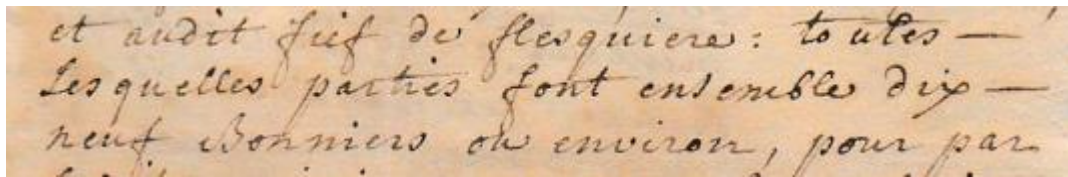 et audit fief de flesquiere : toutes —
Lesquelles parties font ensemble dix —
neuf Bonniers ou environ, pour par